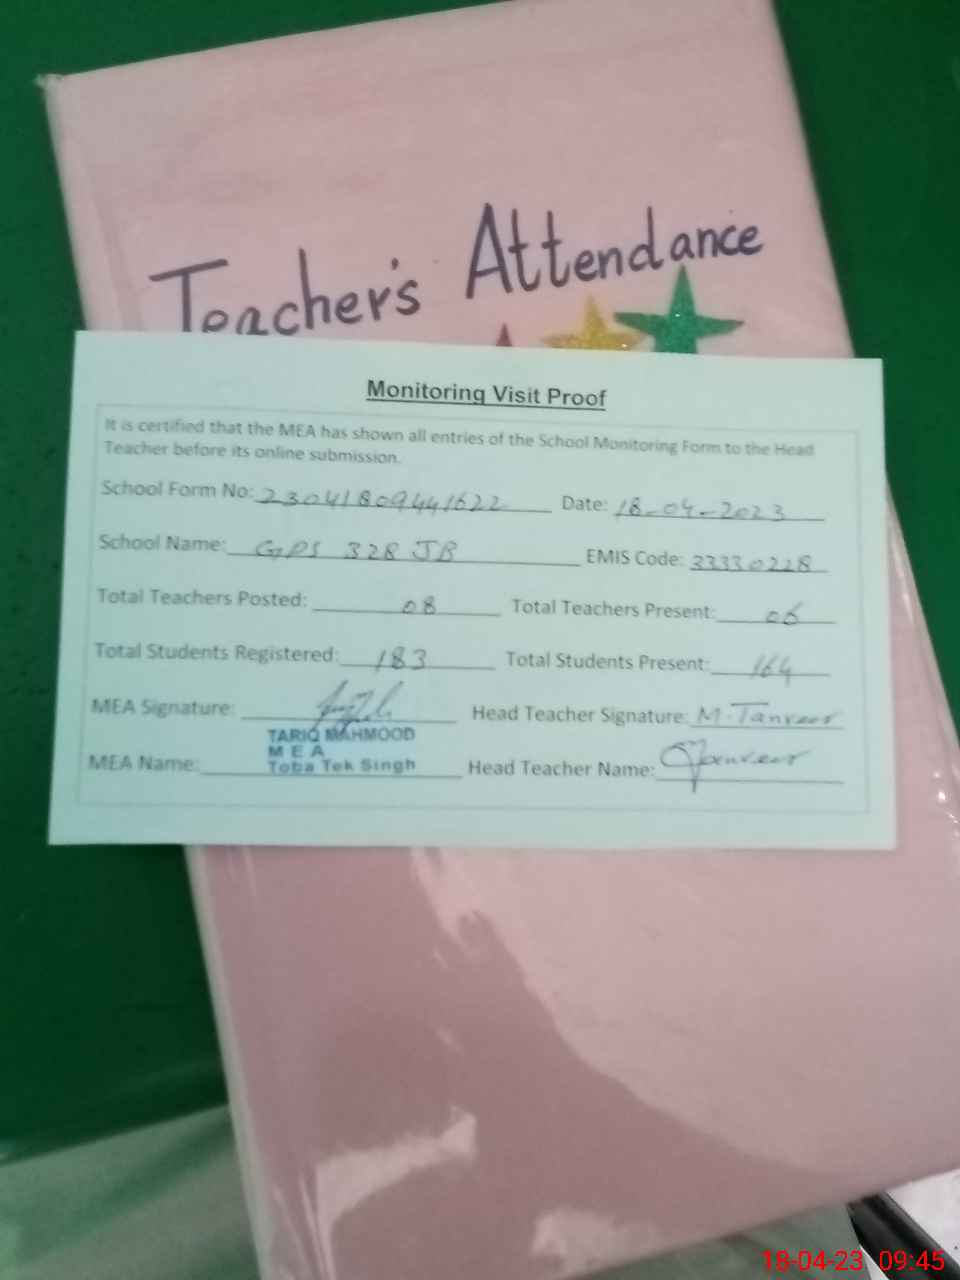 Teacher's Attendance
Monitoring Visit Proof
It is certified that the MEA has shown all entries of the School Monitoring Form to the Head
Teacher before its online submission.
School Form No: 23041809441622 Date: 18-04-2023
School Name: GPS 328 JB EMIS Code: 33330228
Total Teachers Posted: 08 Total Teachers Present: 06
Total Students Registered: 183 Total Students Present: 164
MEA Signature: Head Teacher Signature: M. Tanveer
TARIQ MAHMOOD
M E A
MEA Name: Toba Tek Singh Head Teacher Name: Tanveer
18-04-23 09:45